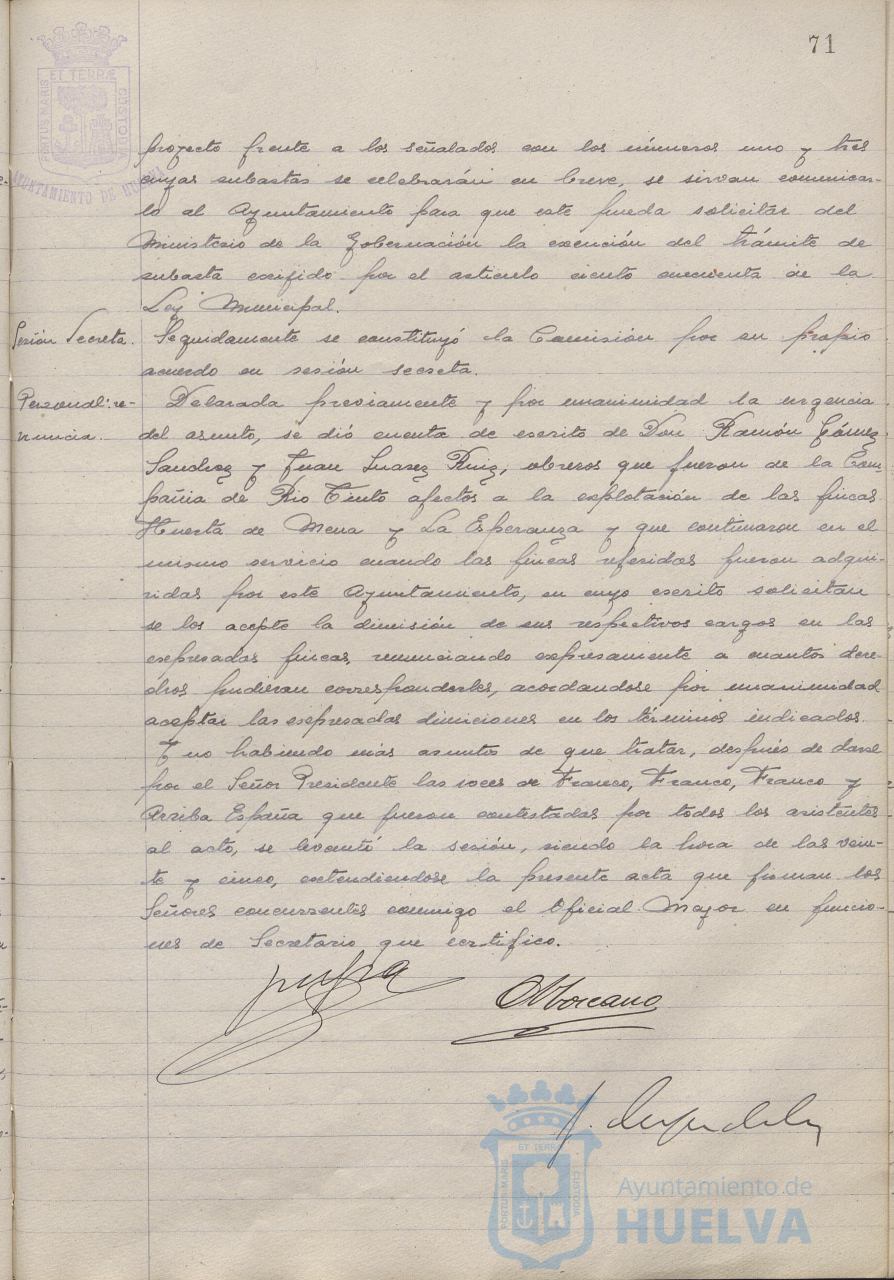 71
ET TERRÆ
PORTUS MARIS
CUSTODIA
AYUNTAMIENTO DE HUELVA
proyecto frente a los señalados con los números uno y tres
cuyas subastas se celebrarán en breve, se sirvan comunicar-
lo al Ayuntamiento para que este pueda solicitar del
Ministerio de la Gobernación la exención del trámite de
subasta exigido por el articulo ciento cincuenta de la
Ley Municipal.
Sesión Secreta. Seguidamente se constituyó la Comisión por su propio
acuerdo en sesión secreta.
Personal: re- Delarada previamente y por unanimidad la urgencia
nuncia. del asunto, se dió cuenta de escrito de Don Ramón Gómez
Sanchez y Juan Suarez Ruiz, obreros que fueron de la Com
pañia de Rio Tinto afectos a la explotación de las fincas
Huerta de Mena y La Esperanza y que continaron en el
mismo servicio cuando las fincas referidas fueron adqui-
ridas por este Ayuntamiento, en cuyo escrito solicitan
se les acepte la dimisión de sus respectivos cargos en las
expresadas fincas, renunciando expresamente a cuantos dere-
chos pudieran corresponderles, acordandose por unanimidad
aceptar las expresadas dimiciones en los términos indicados.
Y no habiendo más asuntos de que tratar, después de darse
por el Señor Presidente las voces de Franco, Franco, Franco y
Arriba España que fueron contestadas por todos los asistentes
al acto, se levantó la sesión, siendo la hora de las vein-
te y cinco, extendiendose la presente acta que firman los
Señores concurrentes conmigo el Oficial Mayor en funcio-
nes de Secretario que certifico.
ET TERRÆ
PORTUS MARIS
CUSTODIA
Ayuntamiento de
HUELVA